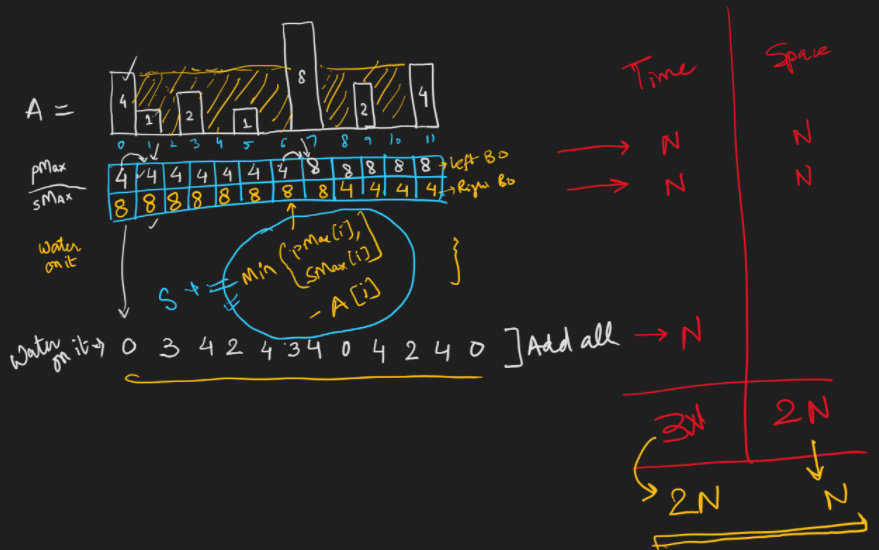 Time Space
A = 4 1 2 1 8 2 4
0 1 2 3 4 5 6 7 8 9 10 11
pMax 4 4 4 4 4 4 4 8 8 8 8 8 → Left BO
sMax 8 8 8 8 8 8 8 8 4 4 4 4 → Right BO
→ N N
→ N N
Water on it
S += Min { pMax[i],
sMax[i] }
- A[i]
Water on it → 0 3 4 2 4 3 4 0 4 2 4 0 ] Add all → N
3N 2N
2N N